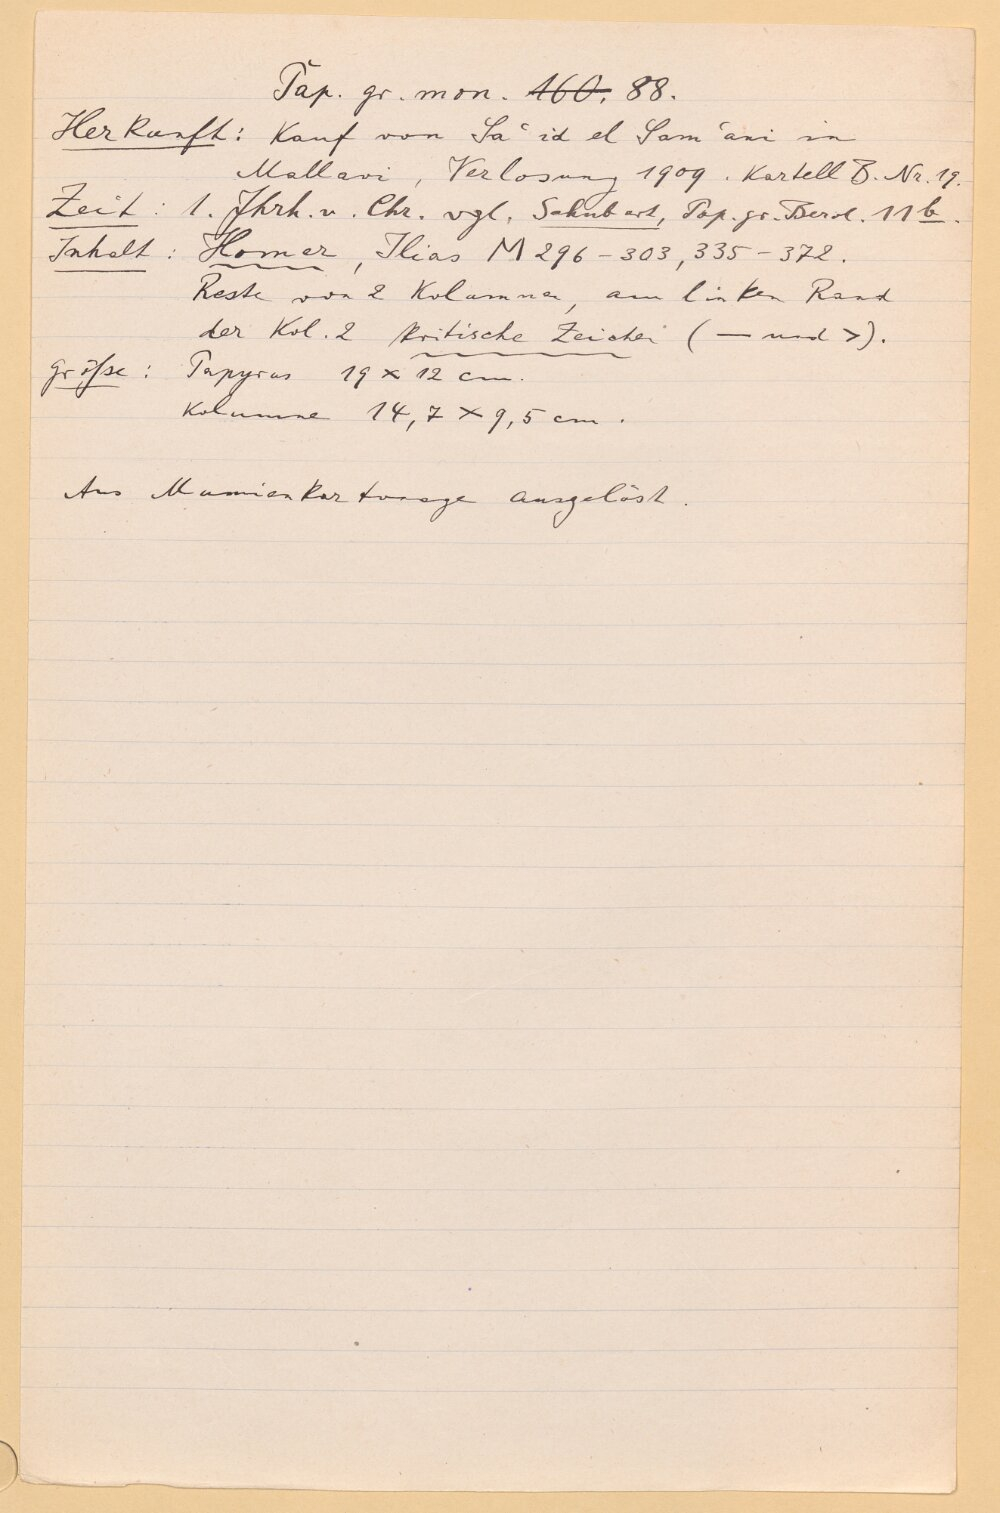 Pap. gr. mon. 160. 88.
Herkunft: Kauf von Saʿid el Samʿani in
Mallavi, Verlosung 1909. Kartell B. Nr. 19.
Zeit: 1. Jhrh. v. Chr. vgl. Schubart, Pap. gr. Berol. 11b.
Inhalt: Homer, Ilias M 296-303, 335-372.
Reste von 2 Kolumnen, am linken Rand
der Kol. 2 kritische Zeichen (— und >).
Größe: Papyrus 19 × 12 cm.
Kolumne 14,7 × 9,5 cm.
Aus Mumienkartonage ausgelöst.